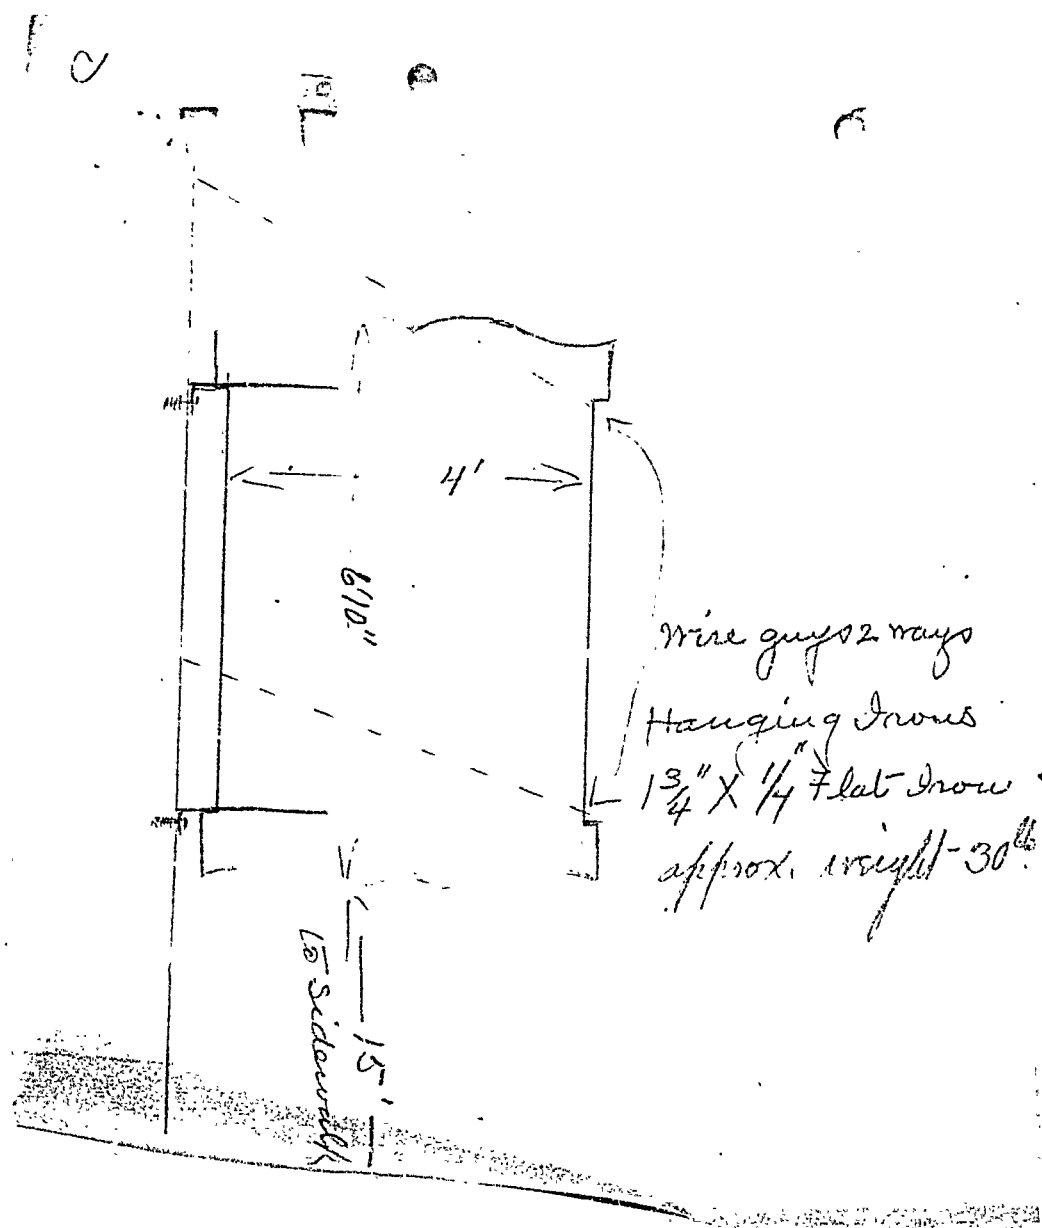 4'
6'10"
Wire guys 2 ways
Hanging Irons
1 3/4" X 1/4" Flat Iron
approx. weight - 30 lb.
15'
to Sidewalk